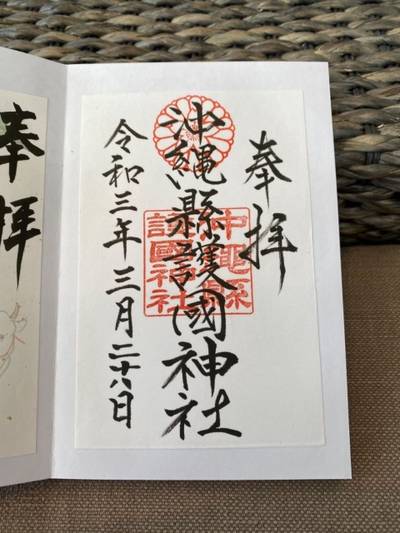 奉拝
沖縄縣護國神社
沖縄縣護國神社
令和三年三月二十八日
奉拝